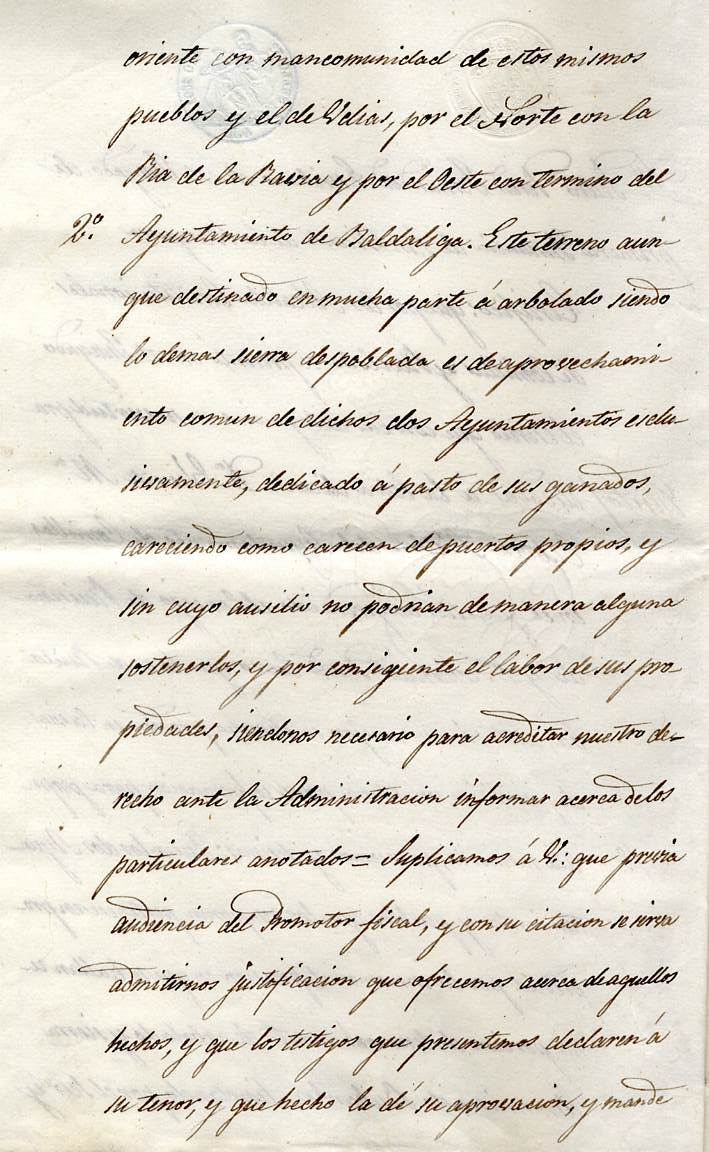 oriente con mancomunidad de estos mismos
pueblos y el de Udias, por el Norte con la
Ria de la Ravia y por el Oeste con termino del
2.º Ayuntamiento de Baldaliga. Este terreno aun-
que destinado en mucha parte á arbolado siendo
lo demas sierra despoblada es de aprovechami-
ento comun de dichos dos Ayuntamientos esclu-
sivamente, dedicado á pasto de sus ganados,
careciendo como carecen de puertos propios, y
sin cuyo ausilio no podrian de manera alguna
sostenerlos, y por consigiente el labor de sus pro-
piedades, siendonos necesario para acreditar nuestro de-
recho ante la Administracion informar acerca de los
particulares anotados = Suplicamos á V.: que previa
audiencia del Promotor fiscal, y con su citacion se sirva
admitirnos justificacion que ofrecemos acerca de aquellos
hechos, y que los testigos que presentemos declaren á
su tenor, y que hecho la dé su aprovacion, y mande